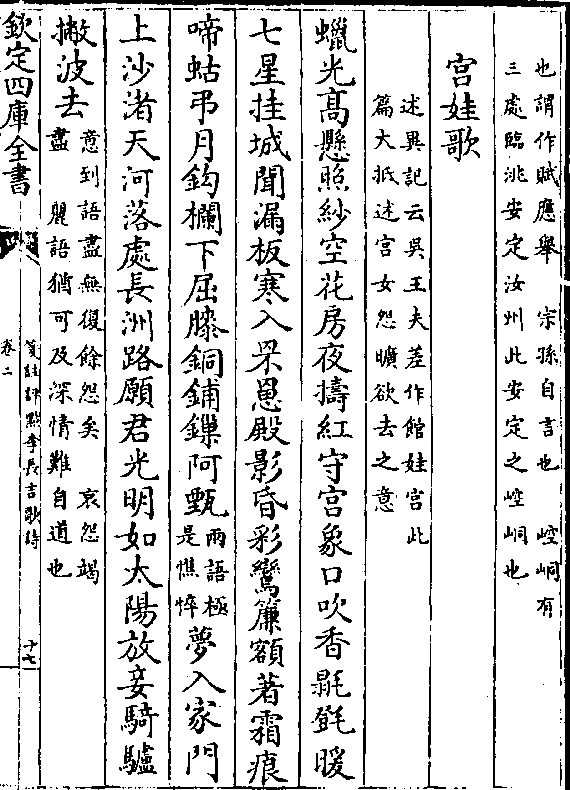 也謂作賦應舉　宗孫自言也　崆峒有
三處臨洮安定汝州此安定之崆峒也
宫娃歌
述異記云吳王夫差作館娃宫此
篇大抵述宫女怨曠欲去之意
蠟光髙懸照紗空花房夜擣紅守宫象口吹香㲮㲪暖
七星挂城聞漏板寒入罘罳殿影昏彩鸞簾額著霜痕
啼蛄弔月鈎欄下屈膝銅鋪鏁阿甄
兩語極
是憔悴
夢入家門
上沙渚天河落處長洲路願君光明如太陽放妾騎驢
撇波去
意到語盡無復餘怨矣　哀怨竭
盡　麗語猶可及深情難自道也
欽定四庫全書
箋註評點李長吉歌詩
卷二
十七